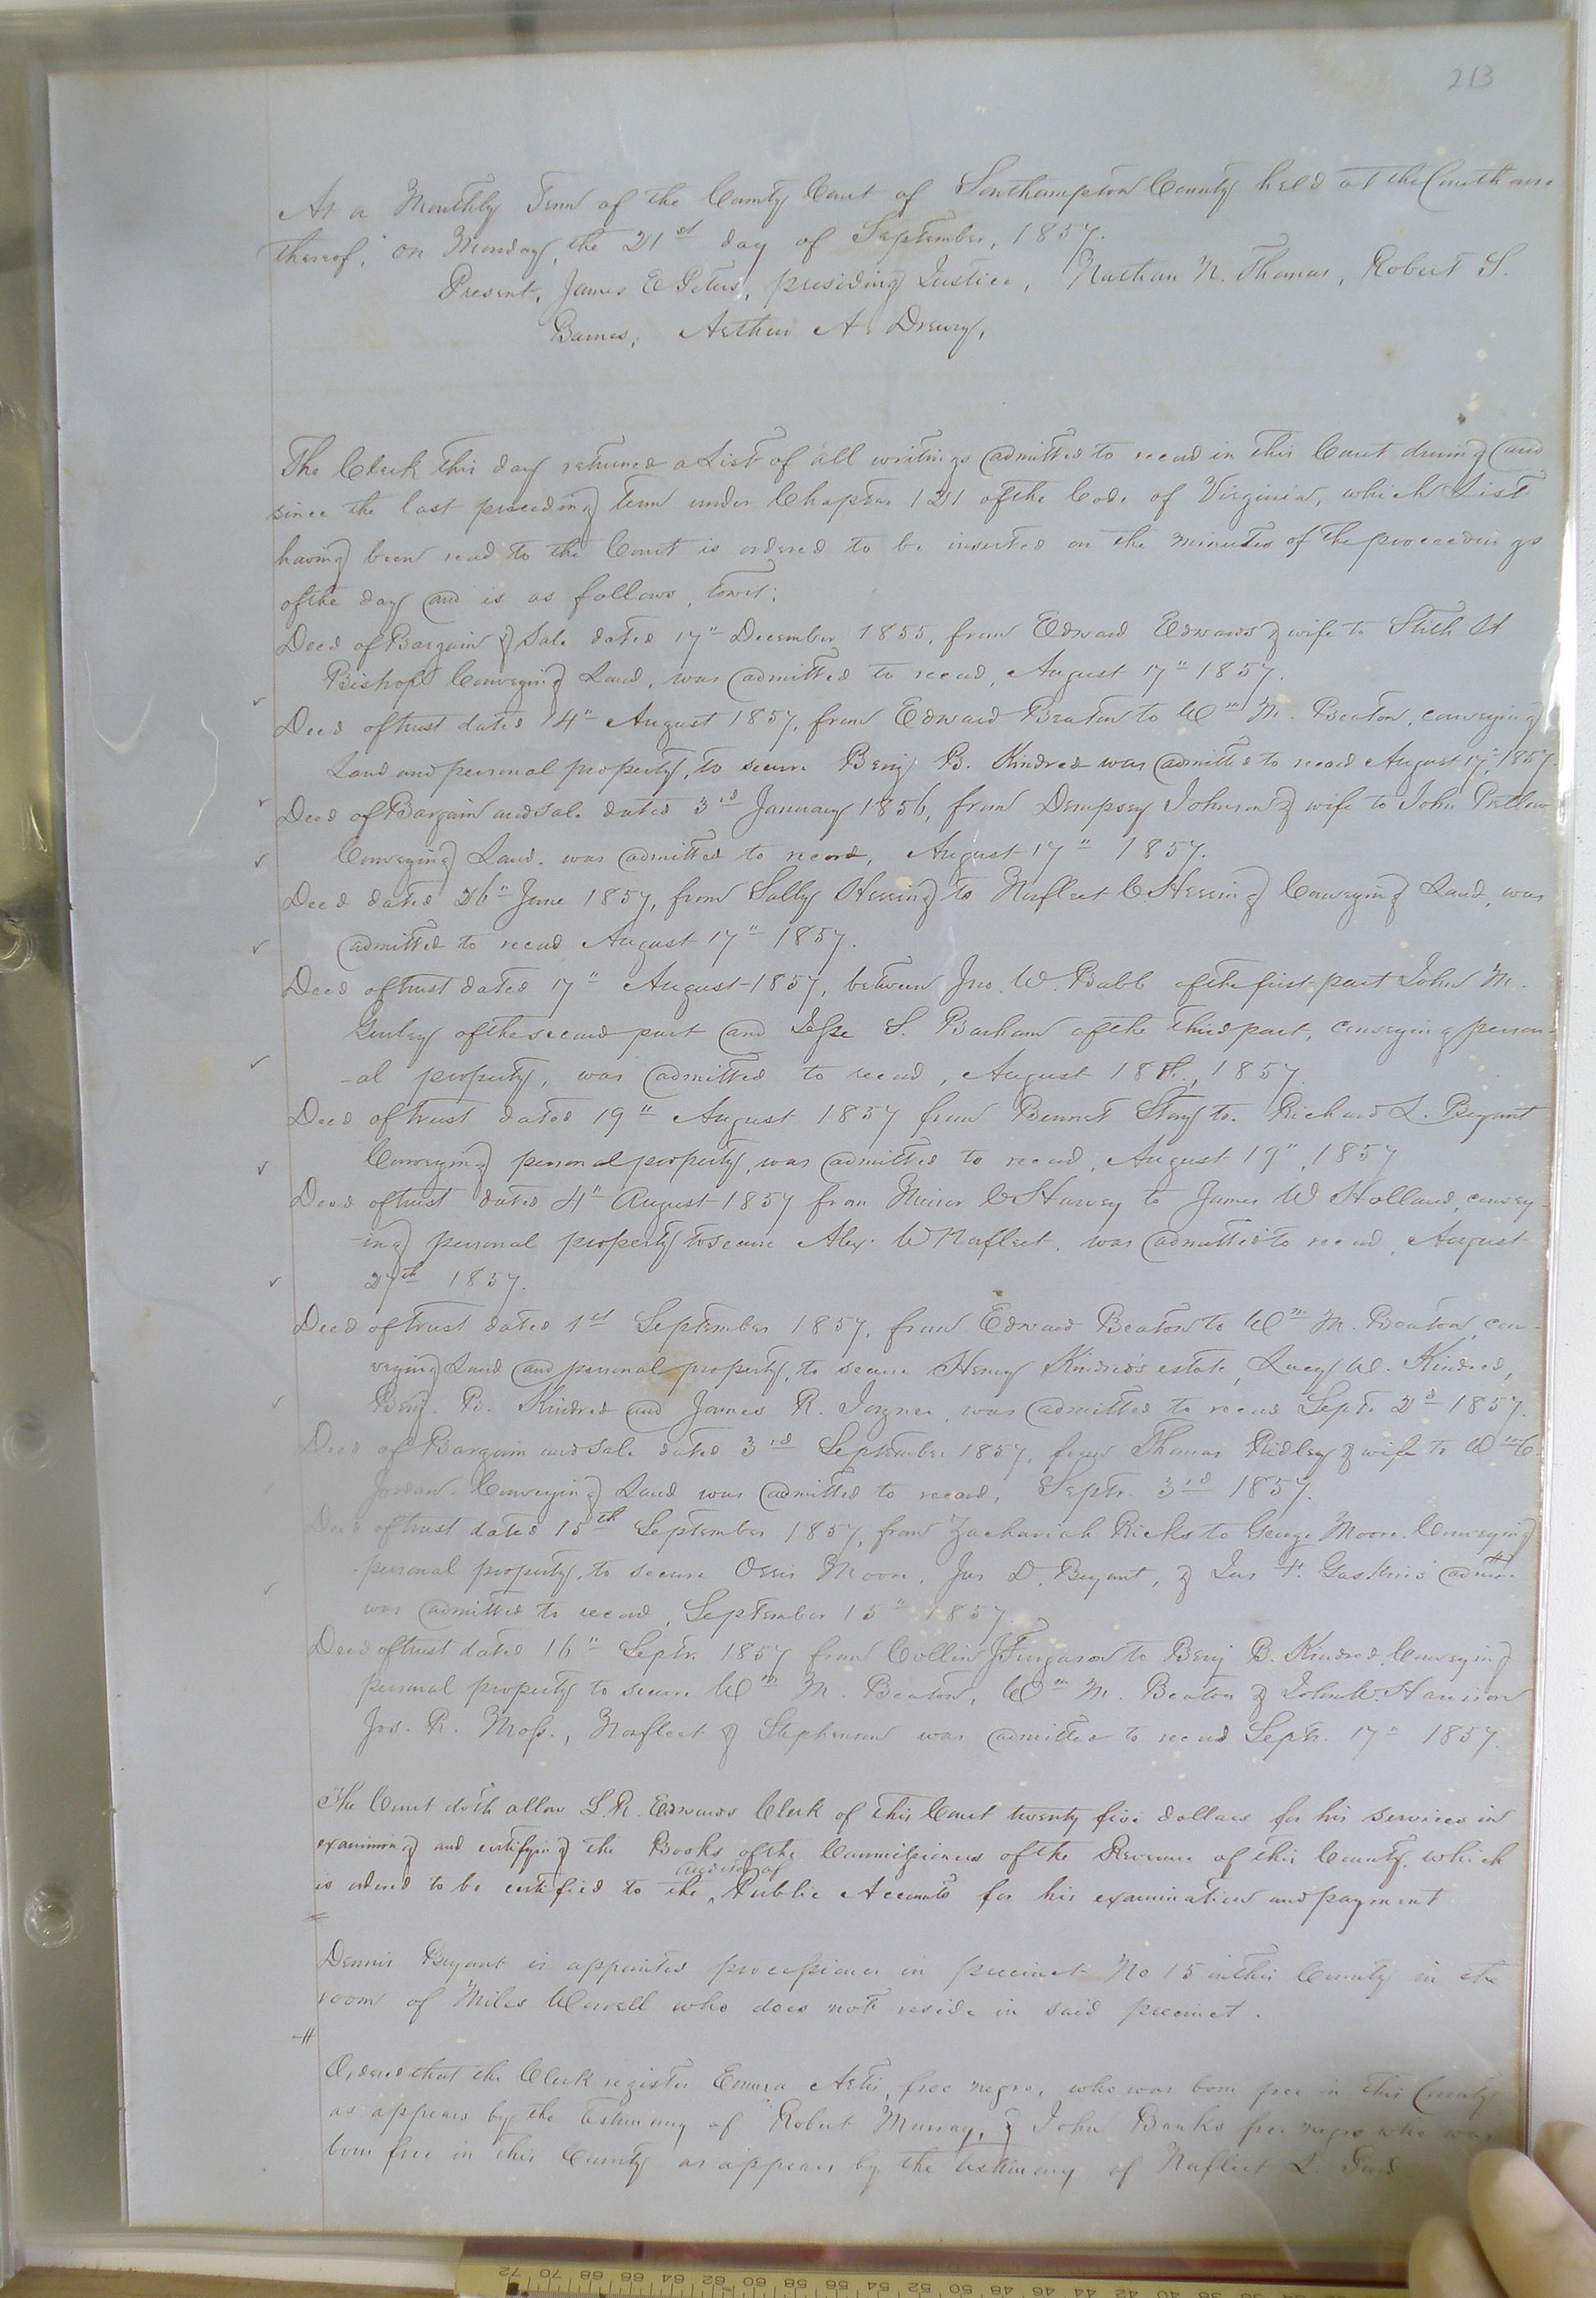 213
At a Monthly Term of the County Court of Southampton County held at the Courthouse
thereof, on Monday, the 21st day of September, 1857.
Present, James E Peters, presiding Justice, Nathan N. Thomas, Robert S.
Barnes, Arthur A. Drewry,
The Clerk this day returned a List of all writings admitted to record in this Court during and
since the last preceding term under Chapter 121 of the Code of Virginia, which List
having been read to the Court is ordered to be inserted on the minutes of the proceedings
of the day and is as follows, towit:
Deed of Bargain & Sale dated 17" December 1855, from Edward Edwards & wife to Stith H
Bishop Conveying Land, was admitted to record, August 17" 1857.
Deed of trust dated 14" August 1857, from Edward Beaton to Wm M. Beaton, conveying
Land and personal property, to secure Benj B. Kindred was admitted to record August 17" 1857
Deed of Bargain and Sale dated 3rd January 1856, from Dempsey Johnson & wife to John Pretlow
Conveying Land. was admitted to record, August 17" 1857.
Deed dated 26" June 1857, from Sally Herring to Norfleet C. Herring Conveying Land, was
admitted to record August 17" 1857.
Deed of trust dated 17" August 1857, between Jno. W. Babb of the first part John M.
Gurley of the second part and Jesse S. Barham of the third part, conveying person-
-al property, was admitted to record, August 18th, 1857
Deed of trust dated 19" August 1857 from Bennet Story to. Richard L. Bryant
Conveying personal property, was admitted to record, August 19", 1857
Deed of trust dated 4" August 1857 from C Harvey to James W Holland, convey-
-ing personal property to secure Alex. W Norfleet. was admitted to record, August
27th 1857.
Deed of trust dated 1st September 1857, from Edward Beaton to Wm M. Beaton, con-
veying Land and personal property, to secure Henry Kindred's estate, Lucy W. Kindred,
Benj. B. Kindred and James R. Joyner, was admitted to record Sept. 2d 1857.
Deed of Bargain and Sale dated 3rd September 1857, from Thomas Ridley & wife to Wm C.
Jordan Conveying Land was admitted to record, Septr. 3rd 1857.
Deed of trust dated 15th September 1857, from Zachariah Ricks to George Moore. Conveying
personal property, to secure Orris Moore, Jas D. Bryant, & Jas F. Gaskins' admr.
was admitted to record, September 15" 1857
Deed of trust dated 16" Septr. 1857 from Collin J Ferguson to Benj B. Kindred. Conveying
personal property to secure Wm M. Beaton, Wm M. Beaton & John W. Harrison
Jos. R. Moss., Norfleet & Stephenson was admitted to record Septr. 17" 1857.
The Court doth allow L. R. Edwards Clerk of this Court twenty five dollars for his services in
examining and certifying the Books of the Commissioners of the Revenue of this County, which
is ordered to be certified to the Auditor of Public Accounts for his examination and payment
Dennis Bryant is appointed processioner in precinct No 15 in this County in the
room of Miles Worrell who does not reside in said precinct.
Ordered that the Clerk register Emma Artis, free negro, who was born free in this County
as appears by the testimony of Robert Murray, & John Banks free negro who was
born free in this County as appears by the testimony of Norfleet L.